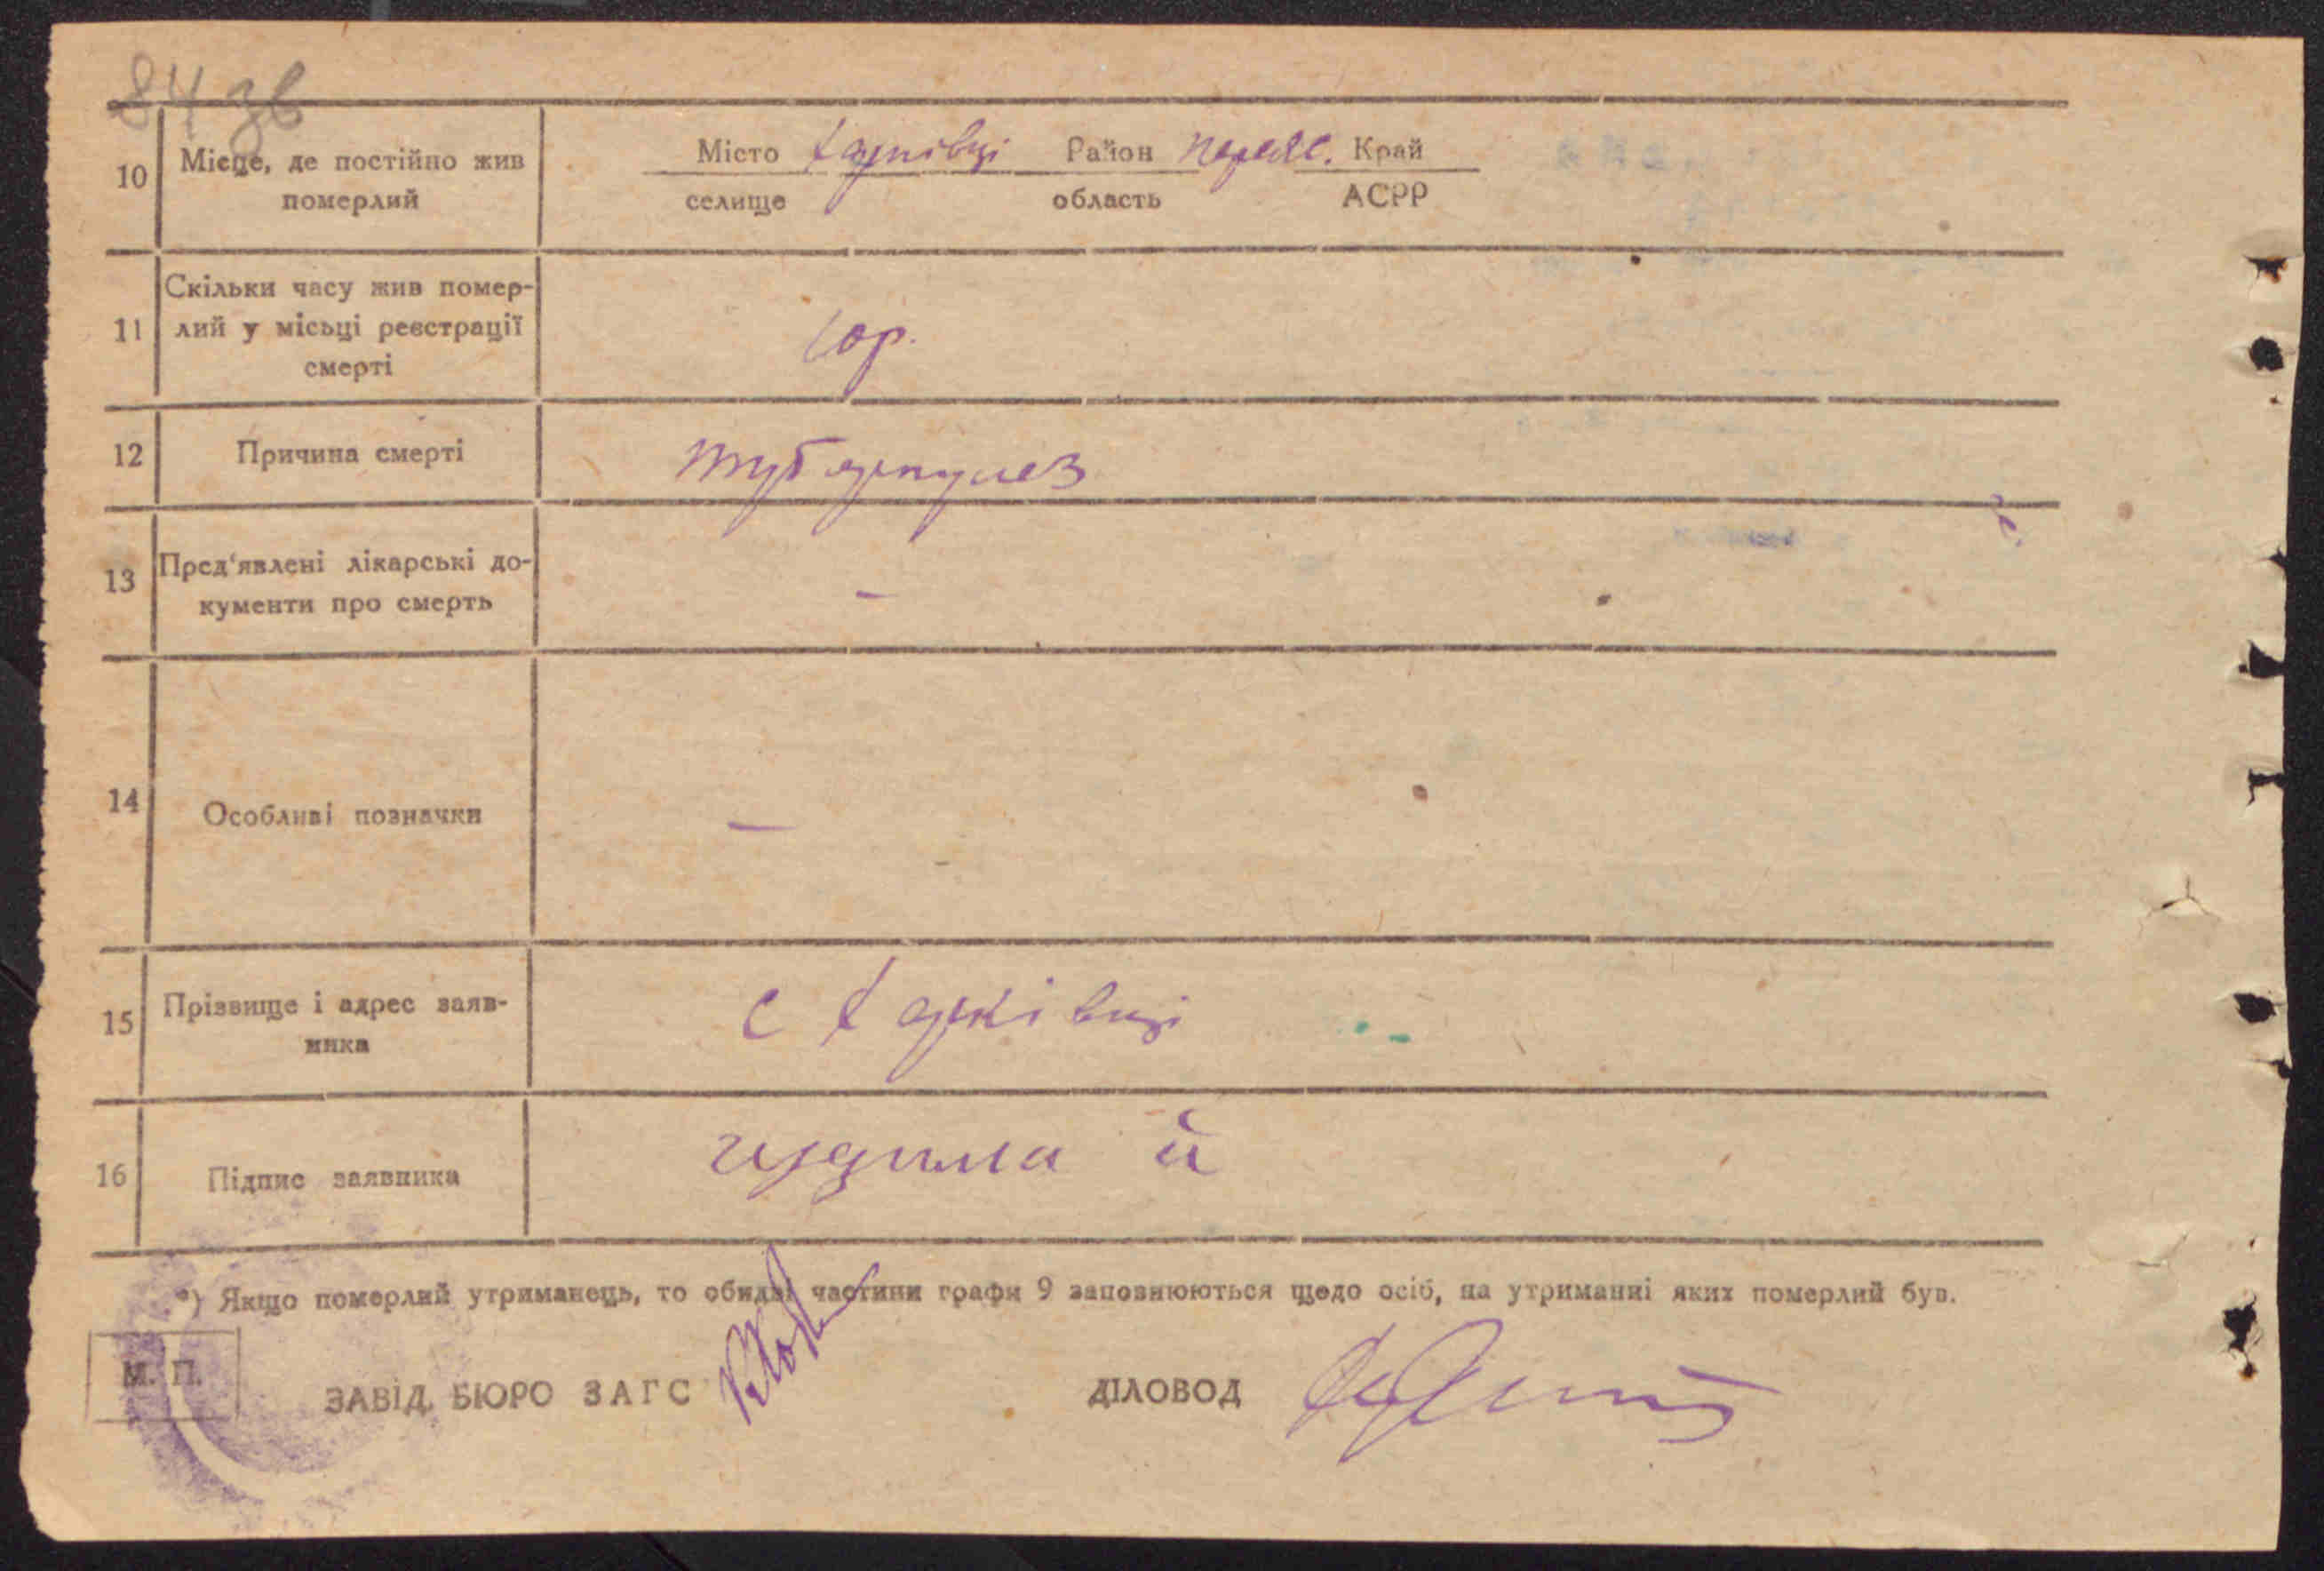 84 зв
10 Місце, де постійно жив померлий
Місто Харківці Район Переяс. Край
селище область АСРР
11 Скільки часу жив помер-
лий у місьці реєстрації
смерті
12 Причина смерті туберкулез
13 Пред'явлені лікарські до-
кументи про смерть —
14 Особливі позначки —
15 Прізвище і адрес заяв-
ника
с Харківці
16 Підпис заявника
*) Якщо померлий утриманець, то обидві частини графи 9 заповнюються щодо осіб, на утриманні яких померлий був.
М. П.
ЗАВІД. БЮРО ЗАГС ДІЛОВОД